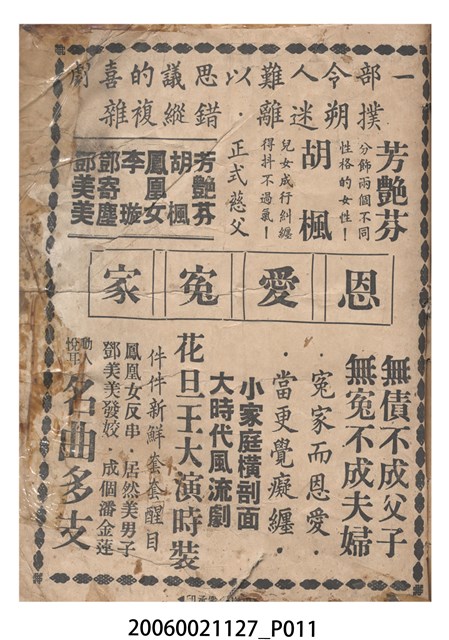 一部令人難以思議的喜劇
撲朔迷離．錯縱複雜
芳艷芬
分飾兩個不同
性格的女性！
胡楓
兒女成行糾纏
得抖不過氣！
正式慈父
芳艷芬
胡楓
鳳凰女
李璇
鄧寄塵
鄧美美
恩愛冤家
無債不成父子
無冤不成夫婦
冤家而恩愛．
當更覺癡纏．
小家庭橫剖面
大時代風流劇
花旦王大演時裝
件件新鮮套套醒目
鳳凰女反串．居然美男子
鄧美美發姣．成個潘金蓮
動人
悅耳
名曲多支
20060021127_P011